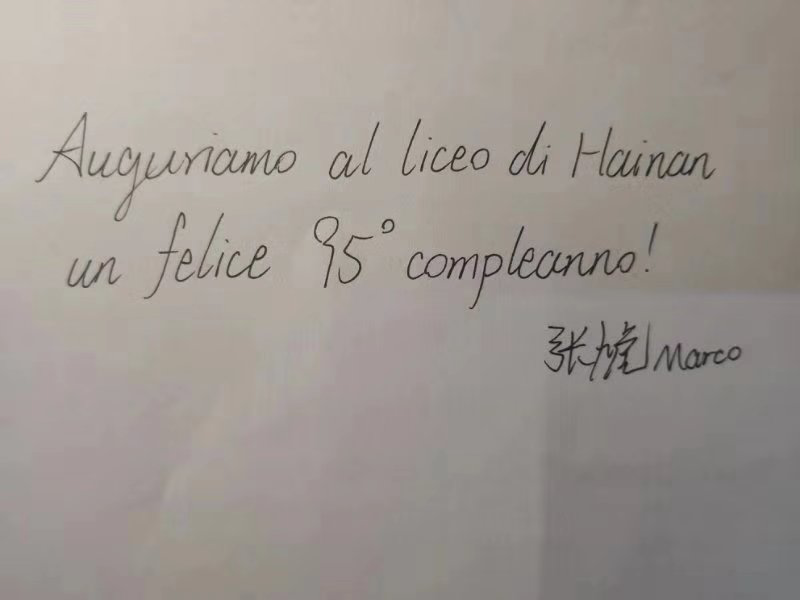 Auguriamo al liceo di Hainan
un felice 95° compleanno!
张 Marco